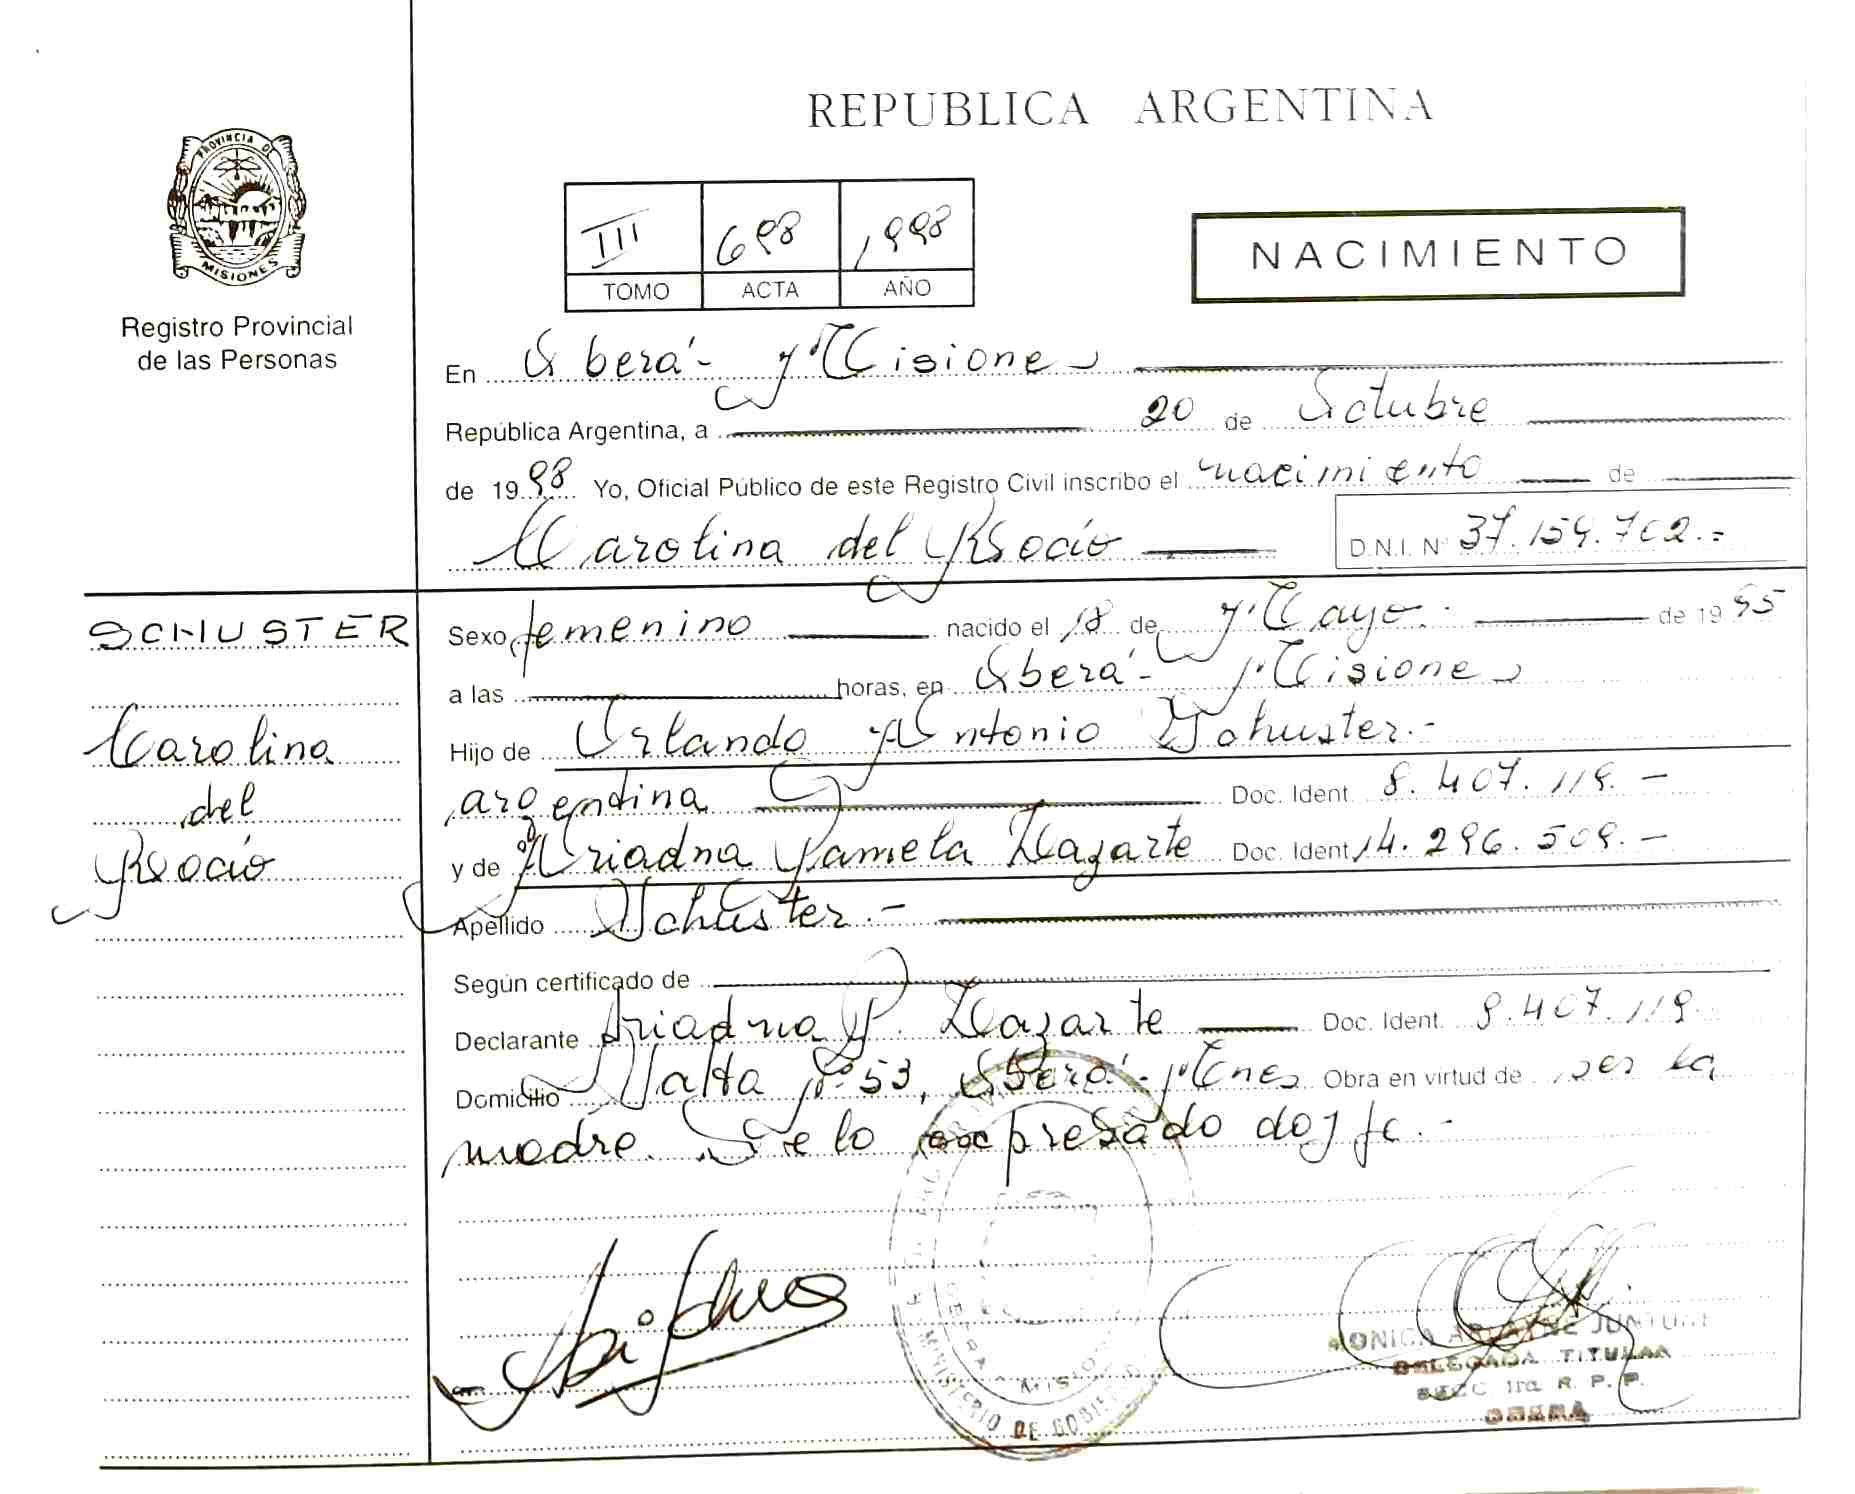 REPUBLICA ARGENTINA
PROVINCIA DE
MISIONES
Registro Provincial
de las Personas
III 698 1998
TOMO ACTA AÑO
NACIMIENTO
En Oberá - Misiones
República Argentina, a 20 de Octubre
de 1998 Yo, Oficial Público de este Registro Civil inscribo el nacimiento de
Carolina del Rocío D.N.I. Nº 37.159.702.-
SCHUSTER
Carolina
del
Rocío
Sexo femenino nacido el 18 de Mayo. de 1995
a las horas, en Oberá - Misiones
Hijo de Orlando Antonio Schuster.-
argentina Doc. Ident 8.407.119.-
y de Ariadna Pamela Lazarte Doc. Ident 14.296.509.-
Apellido Schuster.-
Según certificado de
Declarante Ariadna P. Lazarte Doc. Ident. 8.407.119.
Domicilio Salta Nº 53, Oberá - Mnes Obra en virtud de ser la
madre. De lo expresado doy fe.-
MINISTERIO DE GOBIERNO
MONICA JUNTUNI
DELEGADA TITULAR
SECC 1ra R. P. P.
OBERA